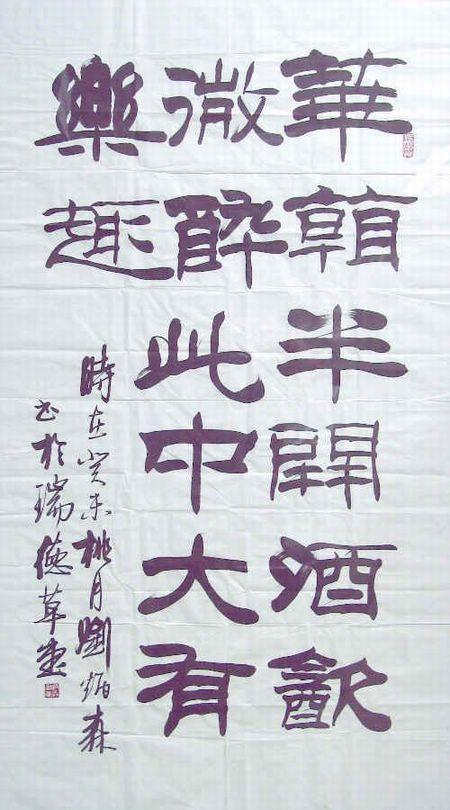 華看半開酒㱃
微醉此中大有
樂趣
時在癸未桃月劉炳森
书於瑞德草堂